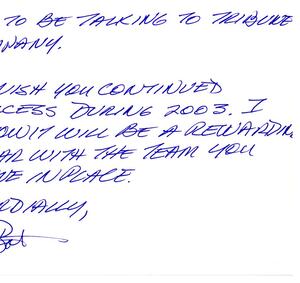 TO BE TALKING TO TRIBUNE
PANY.
WISH YOU CONTINUED
CCESS DURING 2003. I
OW IT WILL BE A REWARDIN
AR WITH THE TEAM YOU
VE IN PLACE.
RDIALLY,
Bob